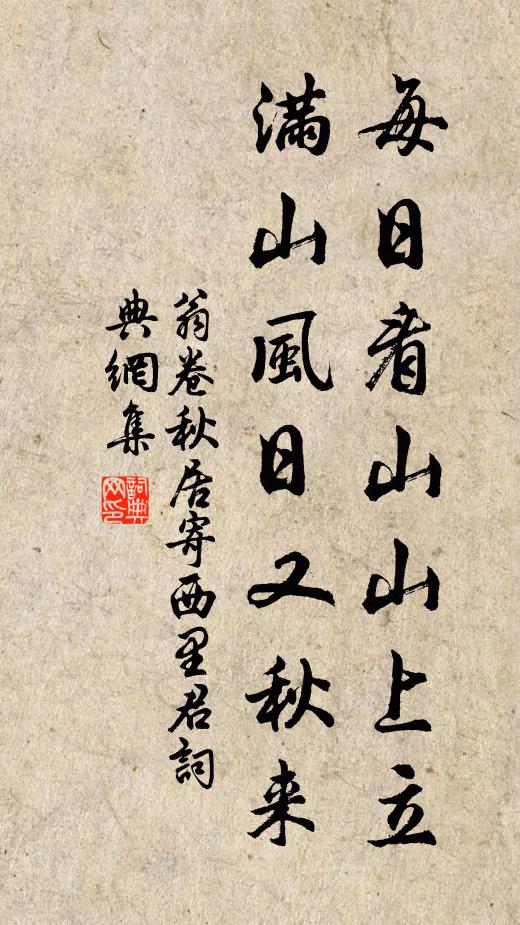 每日看山山上立
滿山風日又秋来
翁卷秋居寄西里君詞
典網集
詞典
网印